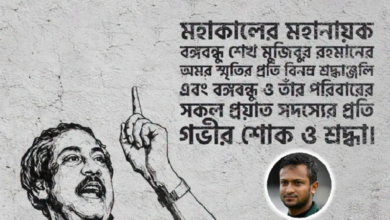 মহাকালের মহানায়ক
বঙ্গবন্ধু শেখ মুজিবুর রহমানের
অমর স্মৃতির প্রতি বিনম্র শ্রদ্ধাঞ্জলি
এবং বঙ্গবন্ধু ও তাঁর পরিবারের
সকল প্রয়াত সদস্যের প্রতি
গভীর শোক ও শ্রদ্ধা।